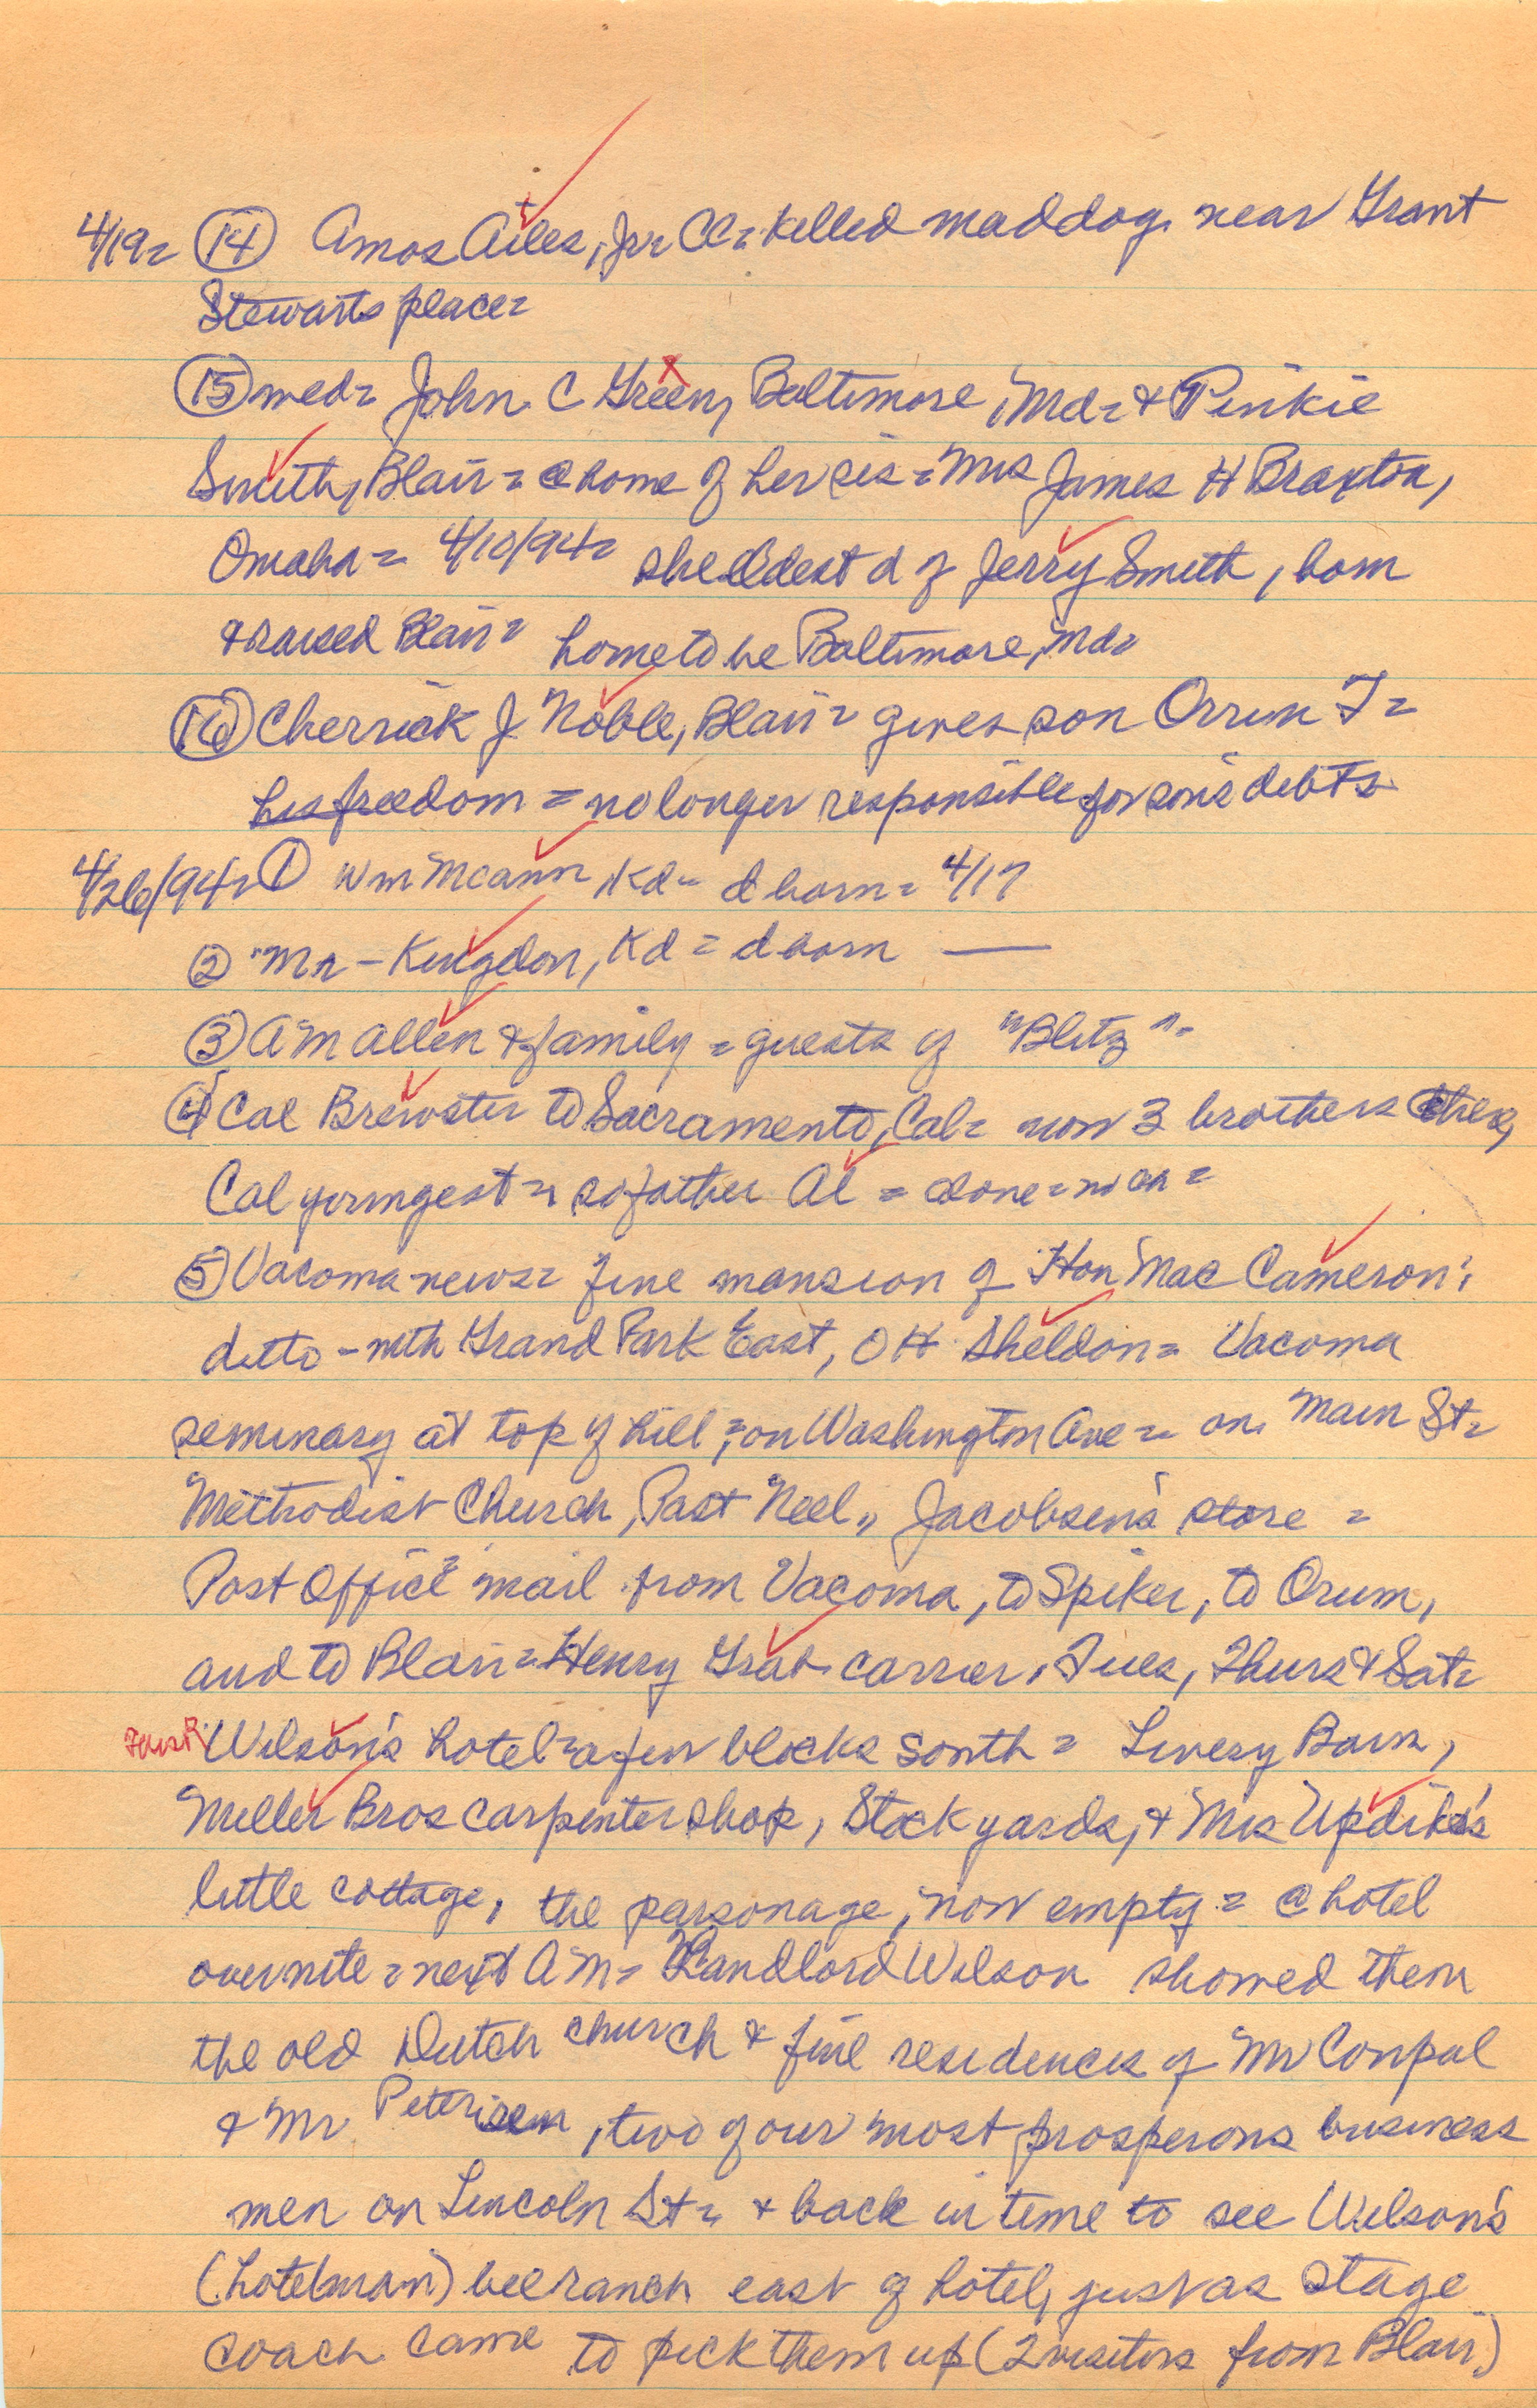 4/19= (14) Amos Ailes, Jr= CC= killed mad dog near Grant
Stewarts place=
(15) med= John C Green, Baltimore, Md= & Pinkie
Smith, Blair= @ home of her sis= Mrs James H Braxton,
Omaha= 4/10/94= she oldest d of Jerry Smith, born
& raised Blair= home to be Baltimore, Md=
(16) Cherrick J Noble, Blair= gives son Orrin T=
his freedom= no longer responsible for son's debts
4/26/94= (1) Wm McCann, Kd= d born= 4/17
(2) Mr - Kingdon, Kd= d born —
(3) A M Allen & family= guests of "Blitz"=
(4) Cal Brewster to Sacramento, Cal= now 3 brothers there,
Cal youngest= so father Al= alone=
(5) Vacoma news= fine mansion of Hon Mac Cameron;
ditto - with Grand Park East, O H Sheldon= Vacoma
seminary at top of hill;= on Washington Ave= on Main St=
Methodist Church, Past Neel,, Jacobsen's store =
Post Office= mail from Vacoma, to Spiker, to Orum,
and to Blair= Henry Grab carrier, Tues, Thurs & Sat=
Wilson's hotel= a few blocks south= Livery Barn,
Miller Bros carpenter shop, Stock yards, & Mrs Updike's
little cottage, the parsonage, now empty= @ hotel
overnite= next A M= Landlord Wilson showed them
the old Dutch church & fine residences of Mr Conpal
& Mr Petersen, two of our most prosperous business
men on Lincoln St= & back in time to see Wilson's
(hotelman) bee ranch east of hotel, just as stage
coach came to pick them up (2 visitors from Blair)